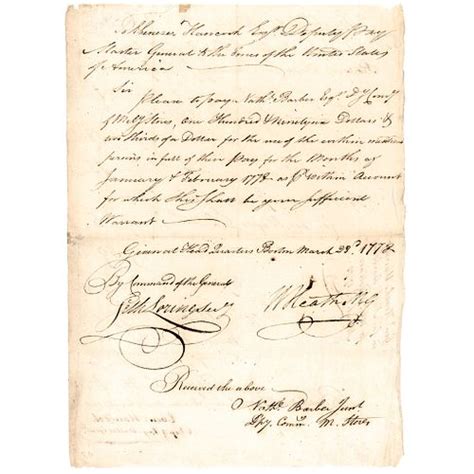 Ebenezer Hancock Esqr. Deputy Pay
Master General to the Forces of the United States
of America
Sir
Please to pay Nathl. Barber Esqr. Dy. Comy.
of Mily. Stores, one Hundred & Ninety nine Dollars &
two thirds of a Dollar for the use of the within mentioned
persons in full of their Pay for the Months of
January & February 1778 as pr. within Account
for which this shall be your sufficient
Warrant
General Head Quarters Boston March 28d. 1778
By Command of the General
W Heath M G
Received the above
Nathl. Barber Junr.
Dpy. Commy. M. Stores